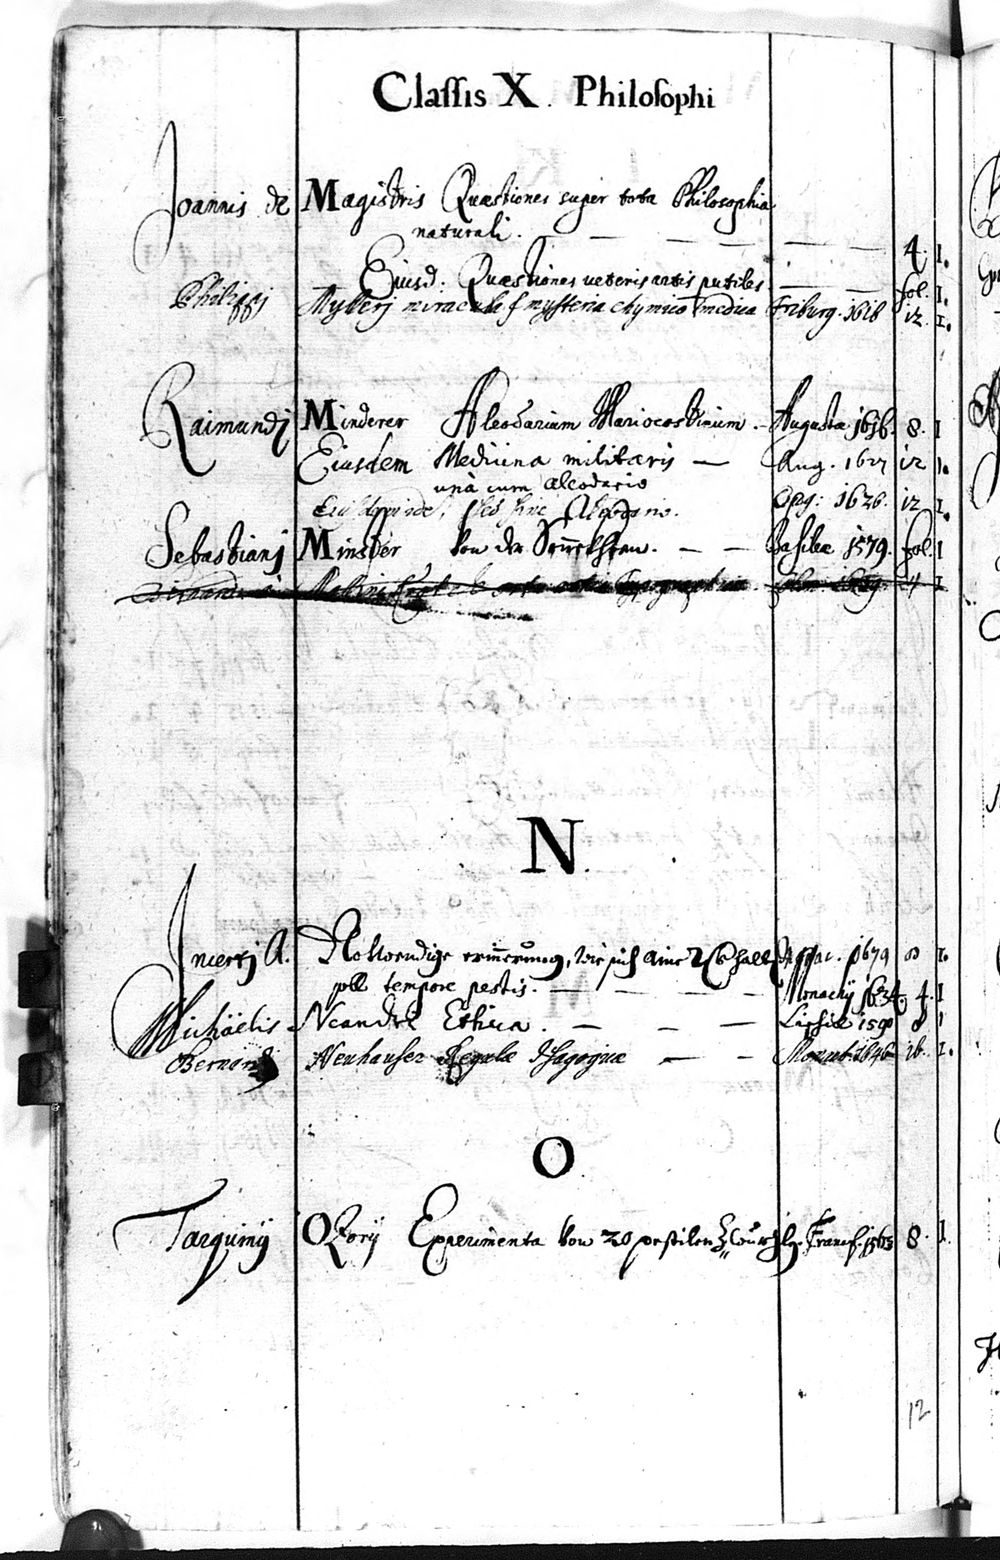 Classis X. Philosophi
Joannis de Magistris Quæstiones super tota Philosophia
naturali. 4. 1.
Eiusd. Quæstiones veteris artis fol. 1.
Philippi Mylleri miracula & mysteria chymico medica Friburg. 1618 12. 1.
Raimundi Minderer Aleodarium Mariocostinum. Augustæ 1616. 8. 1
Eiusdem Medicina militaris Aug. 1627 12 1.
unà cum Aleodario
sed sine Aleodario. Aug: 1626. 12 1.
Sebastiani Minster Von der Basileæ 1579. fol. 1
4 1
N.
A. Notwendige erinnerung, wie sich 1679 8 1.
soll tempore pestis. Monachij 1634. 4. 1
Michäelis Neandri Ethica. Lipsiæ 1590 8 1
Bernardi Neuhauser Regulæ Isagogicæ Monac. 1646 16. 1.
O
Tarquinij Ozorij Experimenta Von 20 pestilentz Francf. 8. 1
12